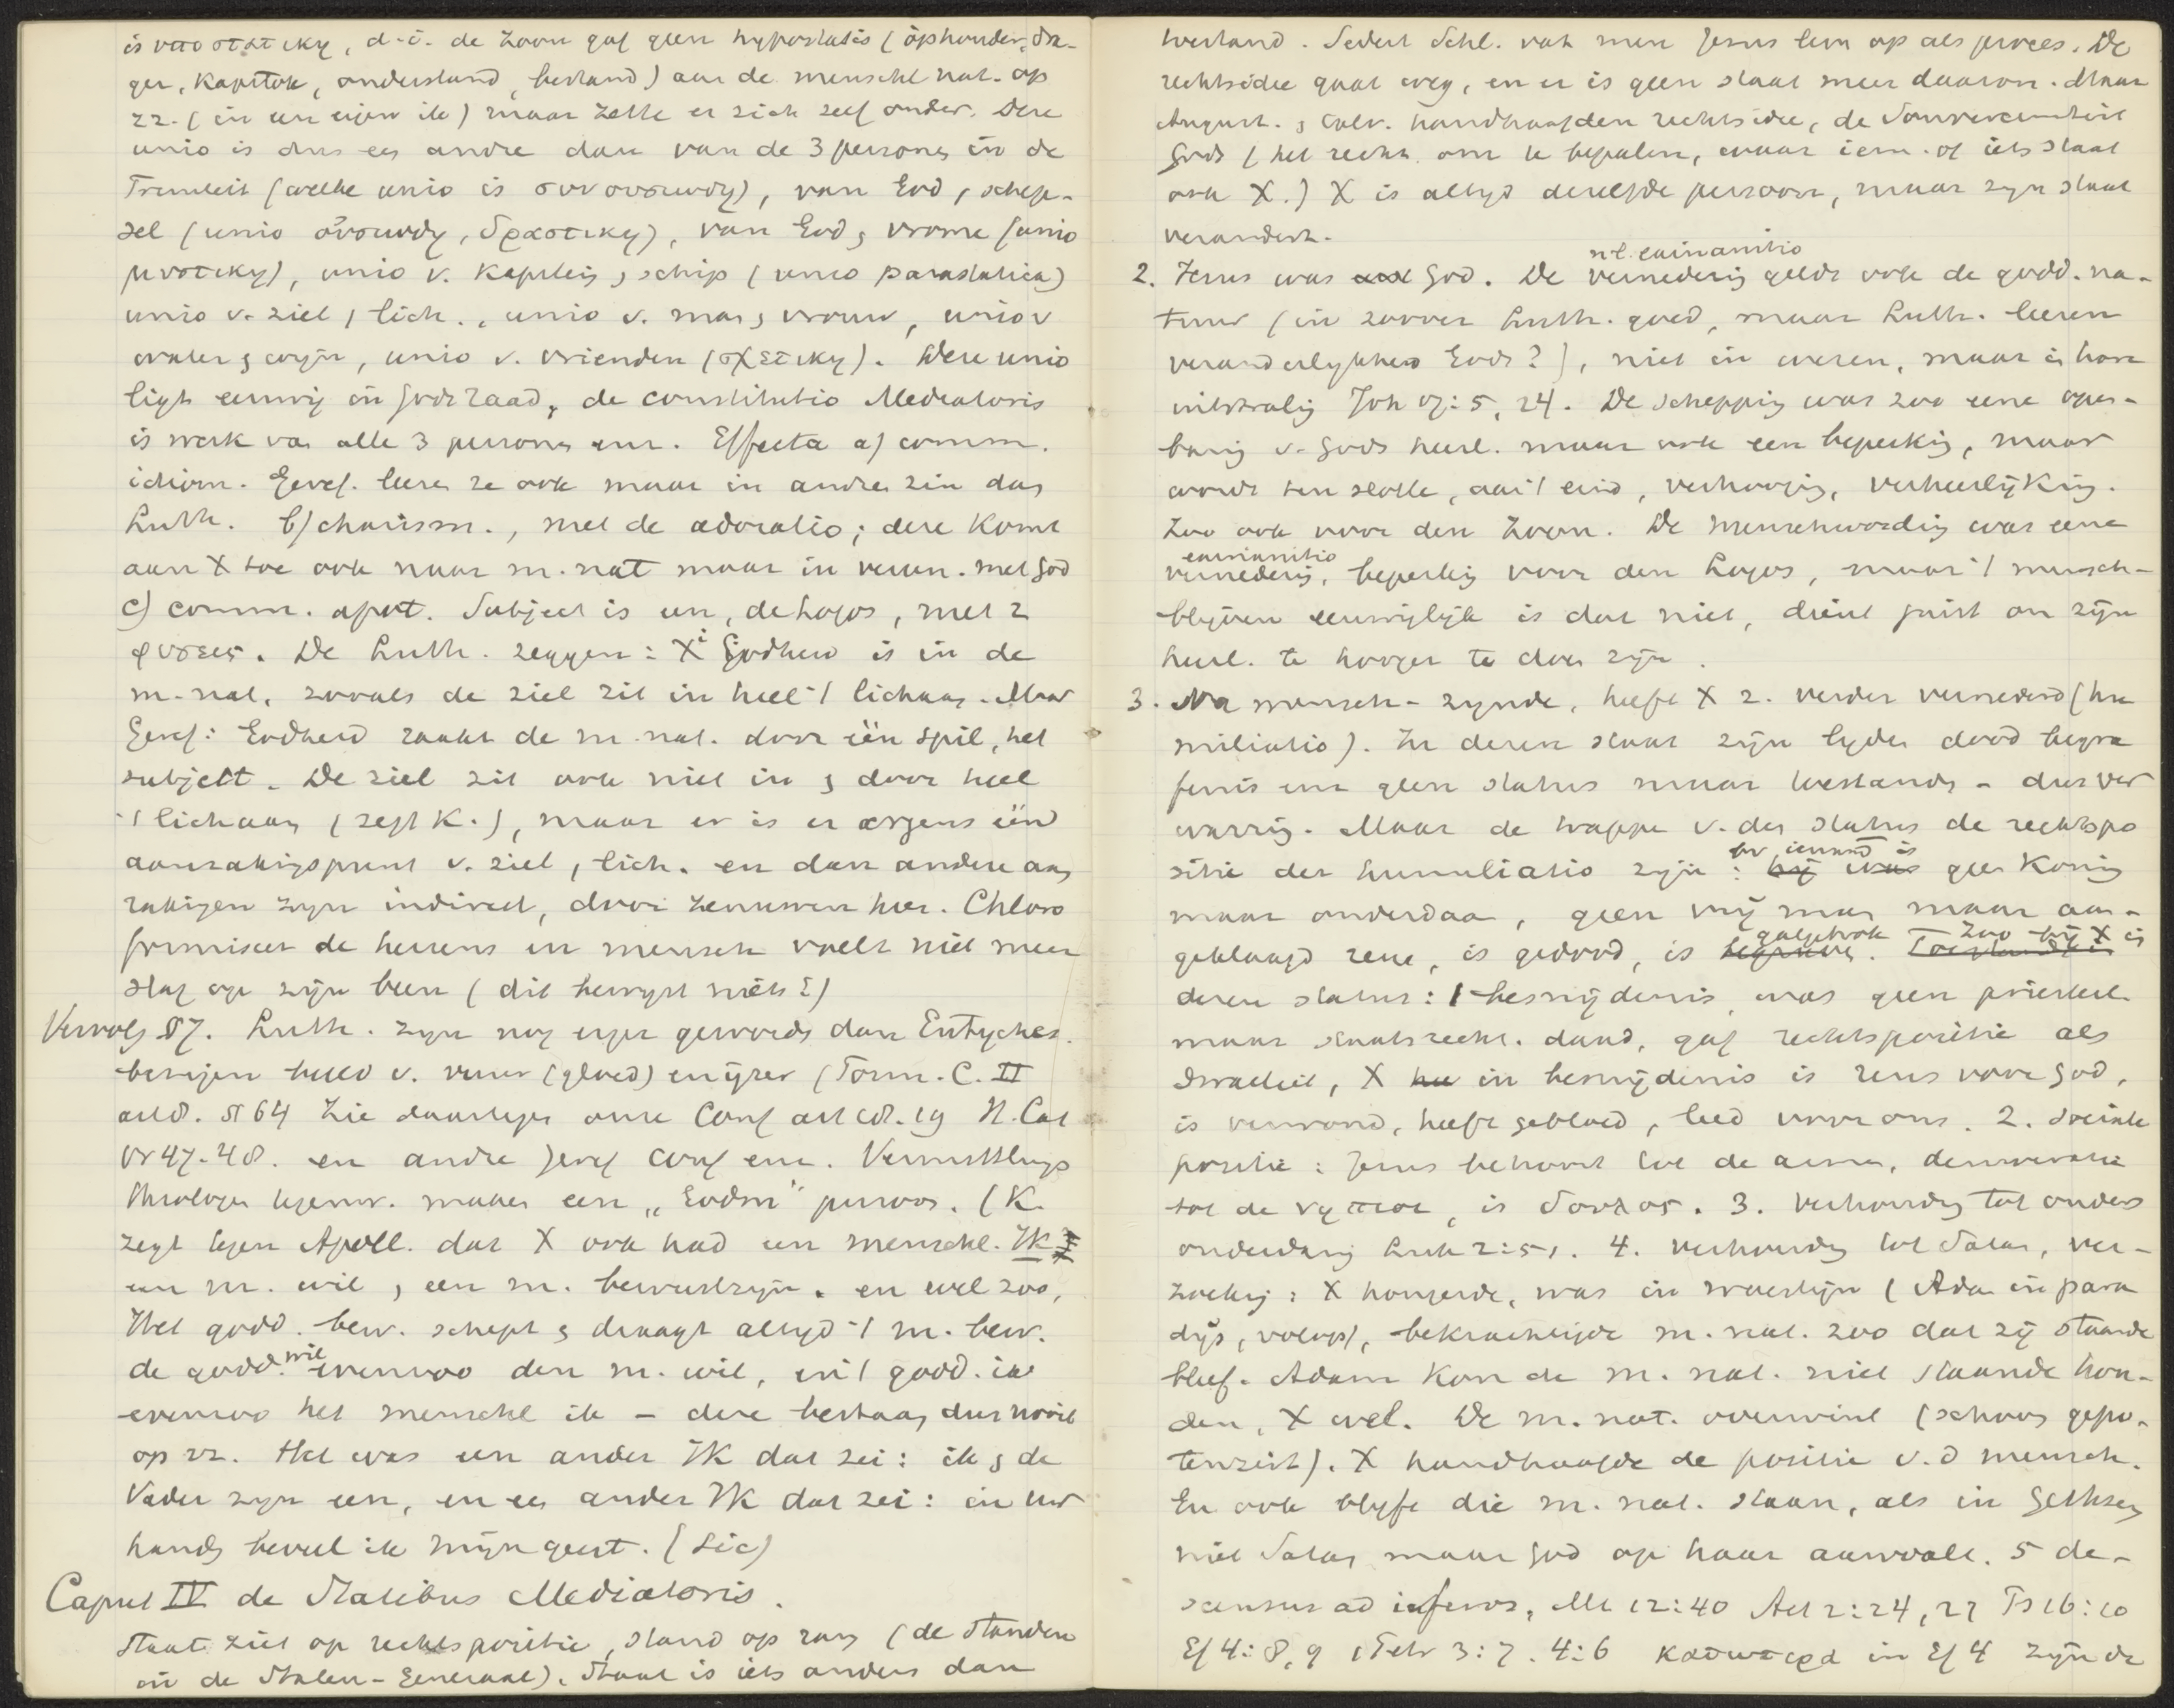 is υποστατικη, d.i. de Zoon gaf geen hypostasis (ophouder, dra-
ger, Kapstok, onderstand, bestand) aan de menschel. nat. op
zz. (in een eigen ik) maar zette er zich zelf onder. Deze
unio is dus een andre dan van de 3 personen in de
Triniteit (welke unio is συνουσιωδη), van God , schep-
sel (unio ουσιωδη, δραστικη), van God , vrome (unio
μυστικη), unio v. Kapitein , schip (unio parastatica)
unio v. ziel , lich., unio v. man , vrouw, unio v
water , wijn, unio v. vrienden (σχετικη). Deze unio
ligt eeuwig in Gods raad, de constitutio Mediatoris
is werk van alle 3 personen enz. Effecta a) comm.
idiom. Geref. leeren ze ook maar in andren zin dan
Luth. b) charism., met de adoratio; deze komt
aan X toe ook naar m. nat maar in veren. met God
c) comm. apot. Subject is een, de Logos, met 2
φυσεις. De Luth. zeggen: Xi Godheid is in de
m. nat. zooals de ziel zit in heel 't lichaam. Maar
Geref: Godheid raakt de m. nat. door één spil, het
subjekt. De ziel zit ook niet in , door heel
't lichaam (zegt K.), maar er is er ergens één
aanrakingspunt v. ziel , lich. en dan andere aan
rakingen zijn indirect, door zenuwen hier. Chloro
formiseer de hersens en mensch voelt niet meer
slag op zijn been (dit bewyst niets!)
Vervolg § 7. Luth. zyn nog erger geworden dan Eutyches.
bezigen beeld v. vuur (gloed) en ijzer (Form. C. II
art 8. § 64 Zie daartegen onze Conf art 18. 19 H. Cat
Vr 47-48. en andre Geref conf enz. Vermittlungs
theologen tegenw. maken een „Godm" persoon. (K.
zegt tegen Apoll. dat X ook had een menschel. Ik
een m. wil , een m. bewustzijn. en wel zoo,
Het godd. bew. schept , draagt altyd 't m. bew.
de godd. wil evenzoo den m. wil, en 't godd. ik
evenzoo het menschel ik - deze bestaan dus nooit
op zz. Het was een ander IK dat zei: ik , de
Vader zyn een, en een ander IK dat zei: in Uw
handen beveel ik mijn geest. (Sic)
Caput IV de Statibus Mediatoris.
Staat ziet op rechtspositie, stand op rang (de standen
in de Staten-Generaal). Staat is iets anders dan
toestand. Sedert Schl. vat men Jezus leven op als proces. De
rechtsidee gaat weg, en er is geen staat meer daarom. Maar
August. , Calv. handhaafden rechtsidee, de Souvereiniteit
Gods (het recht om te bepalen, waar iem. of iets staat
ook X.) X is altyd dezelfde persoon, maar zyn staat
verandert.
2. Jezus was God. De vernedering nl. exinanitio geldt ook de godd. na-
tuur (in zoover Luth. goed, maar Luth. leeren
veranderlykheid Gods?), niet in wezen, maar in hare
uitstraling Joh 17:5, 24. De schepping was zoo eene open-
baring v. Gods heerl. maar ook een beperking, maar
wordt ten slotte, aan 't eind, verhooging, verheerlijking.
Zoo ook voor den Zoon. De menschwording was eene
exinanitio
vernedering, beperking voor den Logos, maar 't mensch-
blijven eeuwiglijk is dat niet, dient juist om zijn
heerl. te hooger te doen zijn.
3. Na mensch-zynde, heeft X z. verder vernederd (hu
miliatio). In dezen staat zijn lyden dood begra
fenis enz geen status maar toestanden - dus ver
warring. Maar de trappen v. den status de rechtspo
sitie der humiliatio zijn: bv iemand is geen Koning
maar onderdaan, geen vrij man maar aan-
geklaagd zelve, is gedood, is galgehrok. Zoo bij X is
dezen status: 1 besnijdenis was geen priesterl.
maar staatsrecht. daad, gaf rechtspositie als
Israeliet, X in besnijdenis is reus voor God,
is verwond, heeft gebloed, leed voor ons. 2. sociale
positie: Jezus behoort tot de armen, democratie
tot de νηπιοι, is δουλος. 3. Verhouding tot ouders
onderdanig Luk 2:51. 4. verhouding tot Satan, ver-
zoeking: X hongerde, was in woestijn (Adam in para
dijs, volop), bekrachtigde m. nat. zoo dat zij staande
bleef. Adam kon de m. nat. niet staande hou-
den, X wel. De m. nat. overwint (schoon gepo-
tenzeerd). X handhaafde de positie v. d mensch.
En ook blyft die m. nat. staan, als in Gethsem
niet Satan maar God op haar aanvalt. 5 de-
scensus ad inferos, Mt 12:40 Act 2:24, 27 Ps 16:10
Ef 4:8, 9 1 Petr 3:7. 4:6 κατωτερα in Ef 4 zyn de